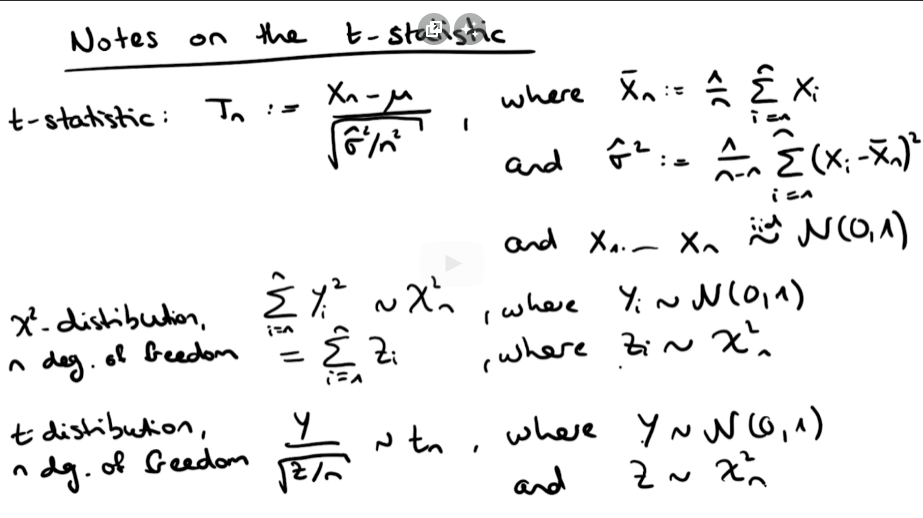 Notes on the t-statistic
t-statistic: Tₙ := (Xₙ - μ) / √(σ̂²/n²) , where X̄ₙ := 1/n Σⁿᵢ₌₁ Xᵢ
and σ̂² := 1/(n-1) Σⁿᵢ₌₁ (Xᵢ - X̄ₙ)²
and X₁ ... Xₙ iid ~ N(0,1)
χ²-distibution, n deg. of freedom Σⁿᵢ₌₁ Yᵢ² ~ χ²ₙ , where Yᵢ ~ N(0,1)
= Σⁿᵢ₌₁ Zᵢ , where Zᵢ ~ χ²₁
t distibution, n dg. of freedom Y / √(Z/n) ~ tₙ , where Y ~ N(0,1)
and Z ~ χ²ₙ